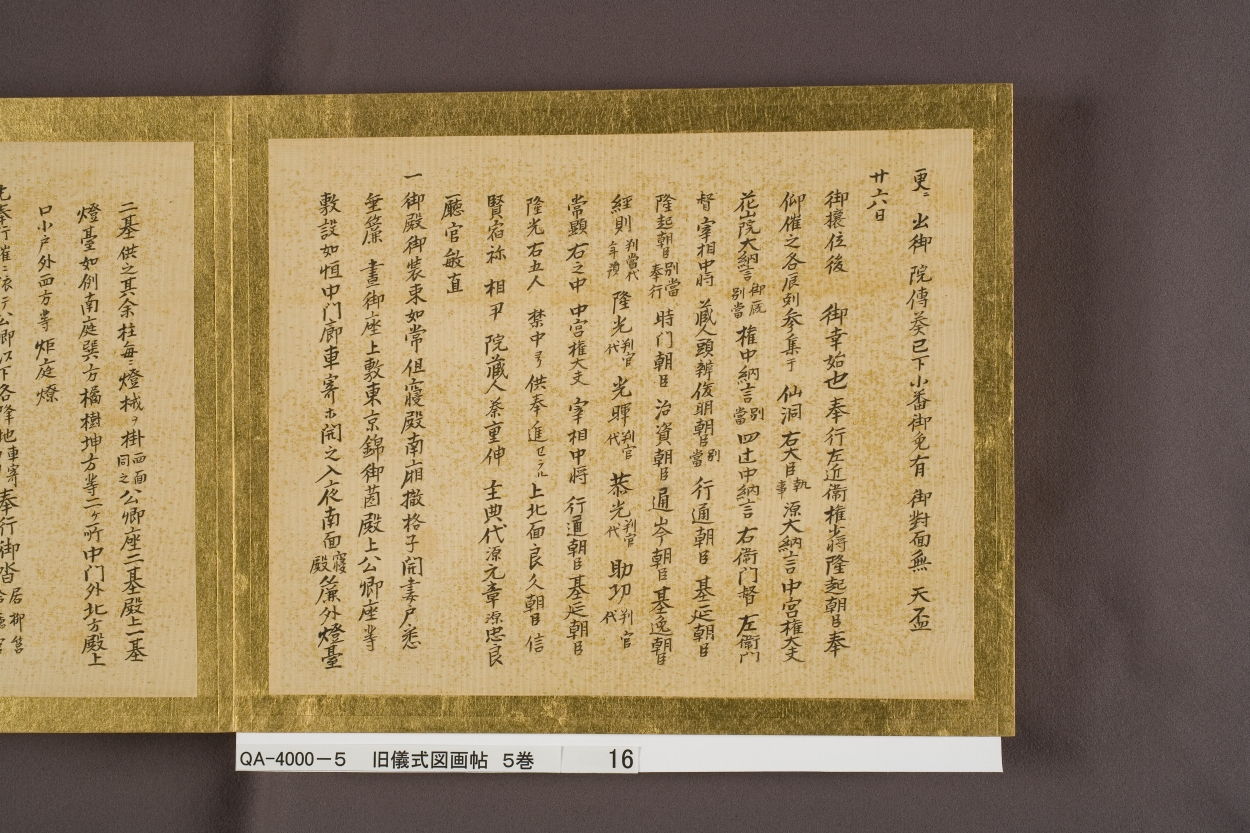 更ニ 出御 院傳奏已下小番御免有 御對面無 天盃
廿六日
御讓位後 御幸始也奉行左近衞權少將隆起朝臣奉
仰催之各辰刻参集于 仙洞右大臣執事源大納言中宮權大夫
花山院大納言御厩別當權中納言別當四辻中納言右衞門督左衞門
督宰相中將藏人頭辨俊明朝臣別當行通朝臣基延朝臣
隆起朝臣別當奉行時門朝臣治資朝臣通岑朝臣基逸朝臣
經則判當代隆光判官代光暉判官代恭光判官代助功判官代
常顯右之中中宮權大夫宰相中將行通朝臣基延朝臣
隆光右五人禁中ヨリ供奉進セラル上北面良久朝臣信
賢宿祢相尹院藏人泰重伸主典代源元章源忠良
廳官敏直
一御殿御装束如常但寢殿南廂撤格子開妻戸悉
垂簾晝御座上敷東京錦御茵殿上公卿座等
敷設如恒中门廊車寄ホ開之入夜南面寢殿簾外燈臺
二基供之其余柱每ニ燈械ヲ掛四面同之公卿座二基殿上一基
燈臺如例南庭巽方橘樹坤方等二ヶ所中门外北方殿上
口小戸外四方等炬庭燎
奉行催ニ依テ公卿以下各降地車寄奉行御沓居柳筥
QA-4000-5 旧儀式図画帖 5巻 16